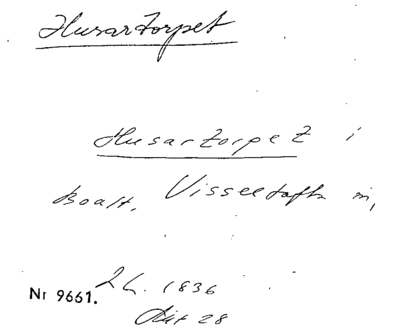 Husartorpet
Husartorpet i
Boalt, Visseltofta
Nr 9661. 1836
28